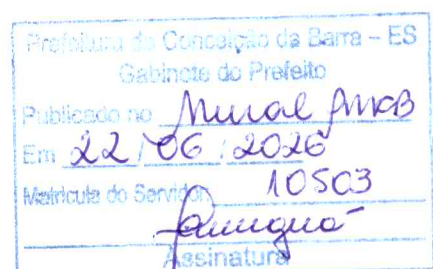 Prefeitura de Conceição da Barra – ES
Gabinete do Prefeito
Publicado no Mural PMCB
Em 22/06/2026
Matrícula do Servidor 10503
Assinatura